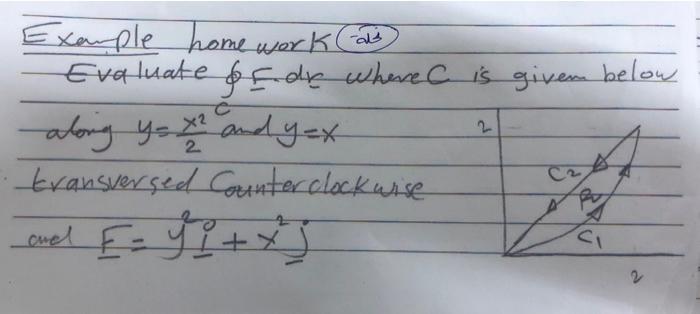 Example homework
Evaluate ∮ F.dr where C is given below
C
along y = x²/2 and y = x
transversed Counterclockwise
and F = y² i + x² j
2
C2
C1
2